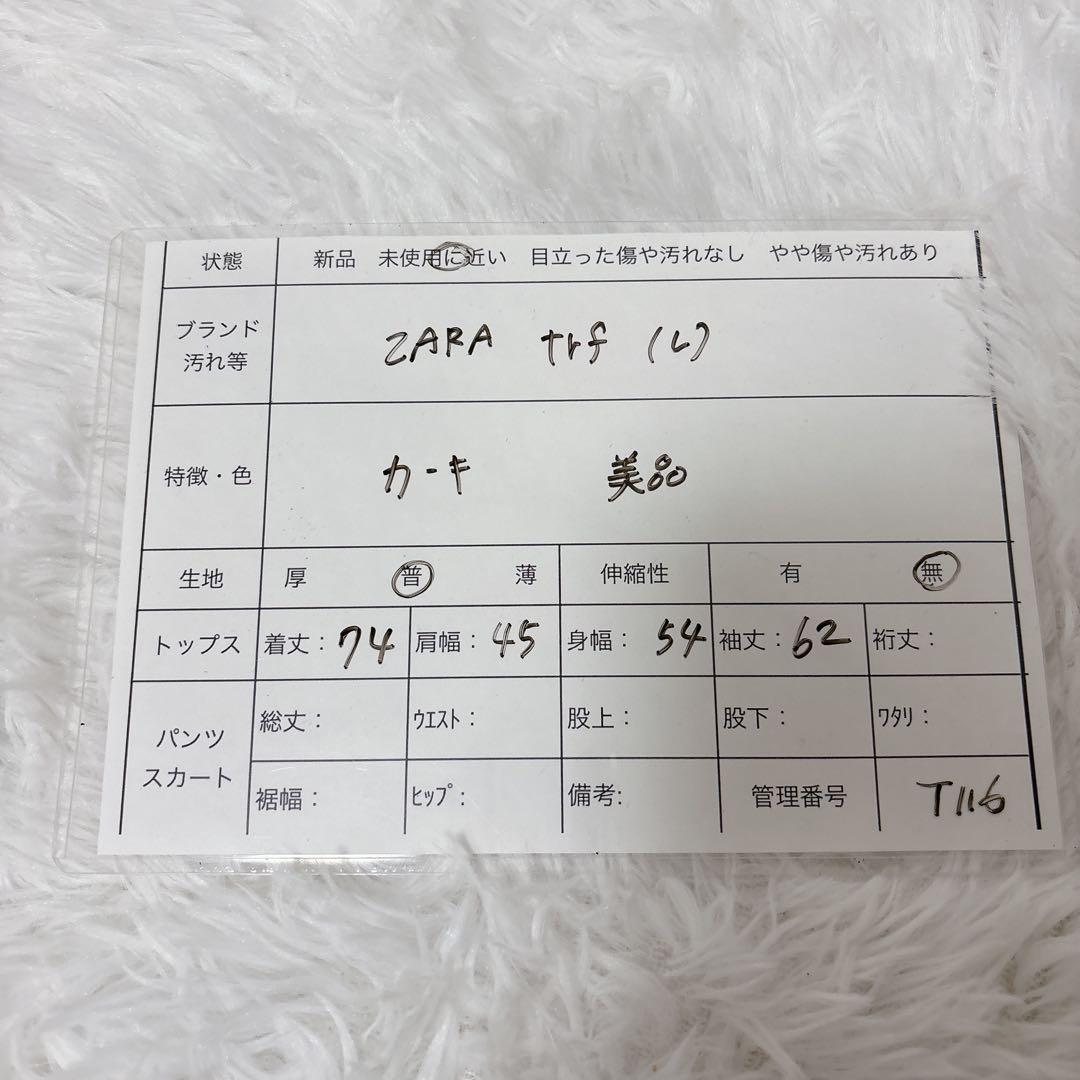 状態 新品 未使用に近い 目立った傷や汚れなし やや傷や汚れあり
ブランド
汚れ等
ZARA trf (L)
特徴・色 カーキ 美品
生地 厚 普 薄 伸縮性 有 無
トップス 着丈：74 肩幅：45 身幅：54 袖丈：62 裄丈：
パンツ
スカート
総丈： ｳｴｽﾄ： 股上： 股下： ﾜﾀﾘ：
裾幅： ﾋｯﾌﾟ： 備考: 管理番号 T116